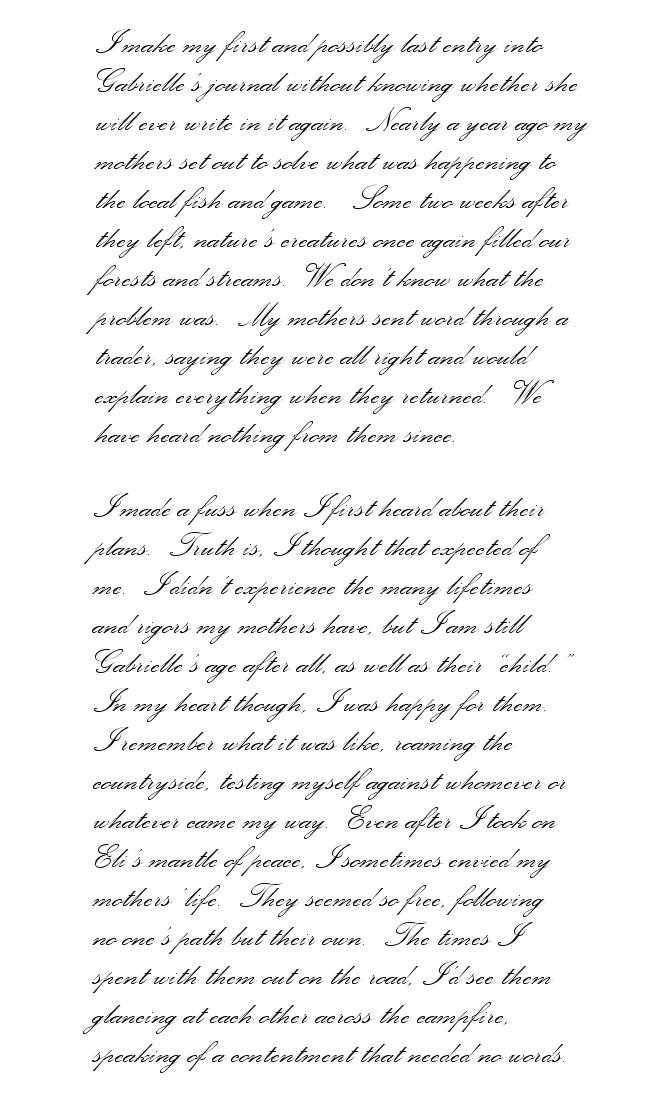 I make my first and possibly last entry into
Gabrielle's journal without knowing whether she
will ever write in it again.  Nearly a year ago my
mothers set out to solve what was happening to
the local fish and game.  Some two weeks after
they left, nature's creatures once again filled our
forests and streams.  We don't know what the
problem was.  My mothers sent word through a
trader, saying they were all right and would
explain everything when they returned.  We
have heard nothing from them since.

I made a fuss when I first heard about their
plans.  Truth is, I thought that expected of
me.  I didn't experience the many lifetimes
and rigors my mothers have, but I am still
Gabrielle's age after all, as well as their "child."
In my heart though, I was happy for them.
I remember what it was like, roaming the
countryside, testing myself against whomever or
whatever came my way.  Even after I took on
Eli's mantle of peace, I sometimes envied my
mothers' life.  They seemed so free, following
no one's path but their own.  The times I
spent with them out on the road, I'd see them
glancing at each other across the campfire,
speaking of a contentment that needed no words.